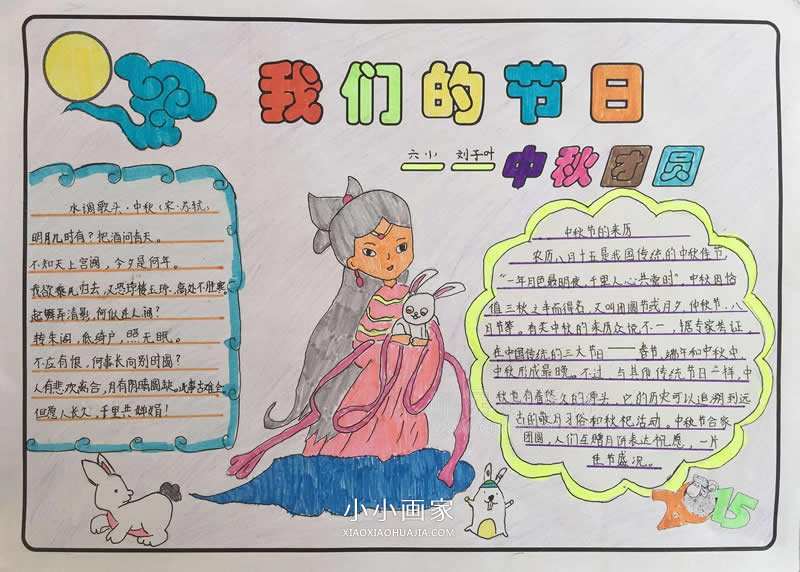 我们的节日
六小 刘子叶 中秋团圆
水调歌头·中秋(宋·苏轼)
明月几时有?把酒问青天。
不知天上宫阙,今夕是何年。
我欲乘风归去,又恐琼楼玉宇,高处不胜寒。
起舞弄清影,何似在人间?
转朱阁,低绮户,照无眠。
不应有恨,何事长向别时圆?
人有悲欢离合,月有阴晴圆缺。此事古难全
但愿人长久,千里共婵娟!
中秋节的来历
农历八月十五是我国传统的中秋佳节,
“一年月色最明夜,千里人心共赏时”,中秋因恰
值三秋之半而得名,又叫团圆节或月夕 仲秋节、八
月节等。有关中秋的来历众说不一,据专家考证,
在中国传统的三大节日——春节、端午和中秋中
中秋形成最晚。不过,与其他传统节日一样,中
秋也有着悠久的源头,它的历史可以追溯到远
古的敬月习俗和秋祀活动。中秋节合家
团圆,人们互赠月饼表达祝愿,一片
佳节盛况。
2015
小小画家
XIAOXIAOHUAJIA.COM